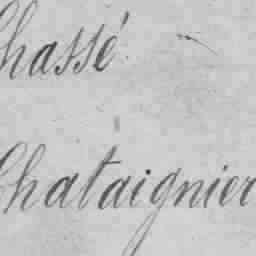 Chassé
Chataignier